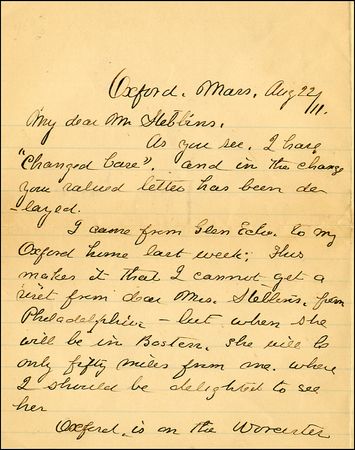 Oxford. Mass. Aug 22/11.
My dear Mr Stebbins.
As you see, I have
"Changed base", and in the change
your valued letter has been de
-layed.
I came from Glen Echo. to my
Oxford home last week; this
makes it that I cannot get a
visit from dear Mrs. Stebbins. from
Philadelphia - but when she
will be in Boston. she will be
only fifty miles from me. where
I should be delighted to see
her
Oxford, is on the Worcester